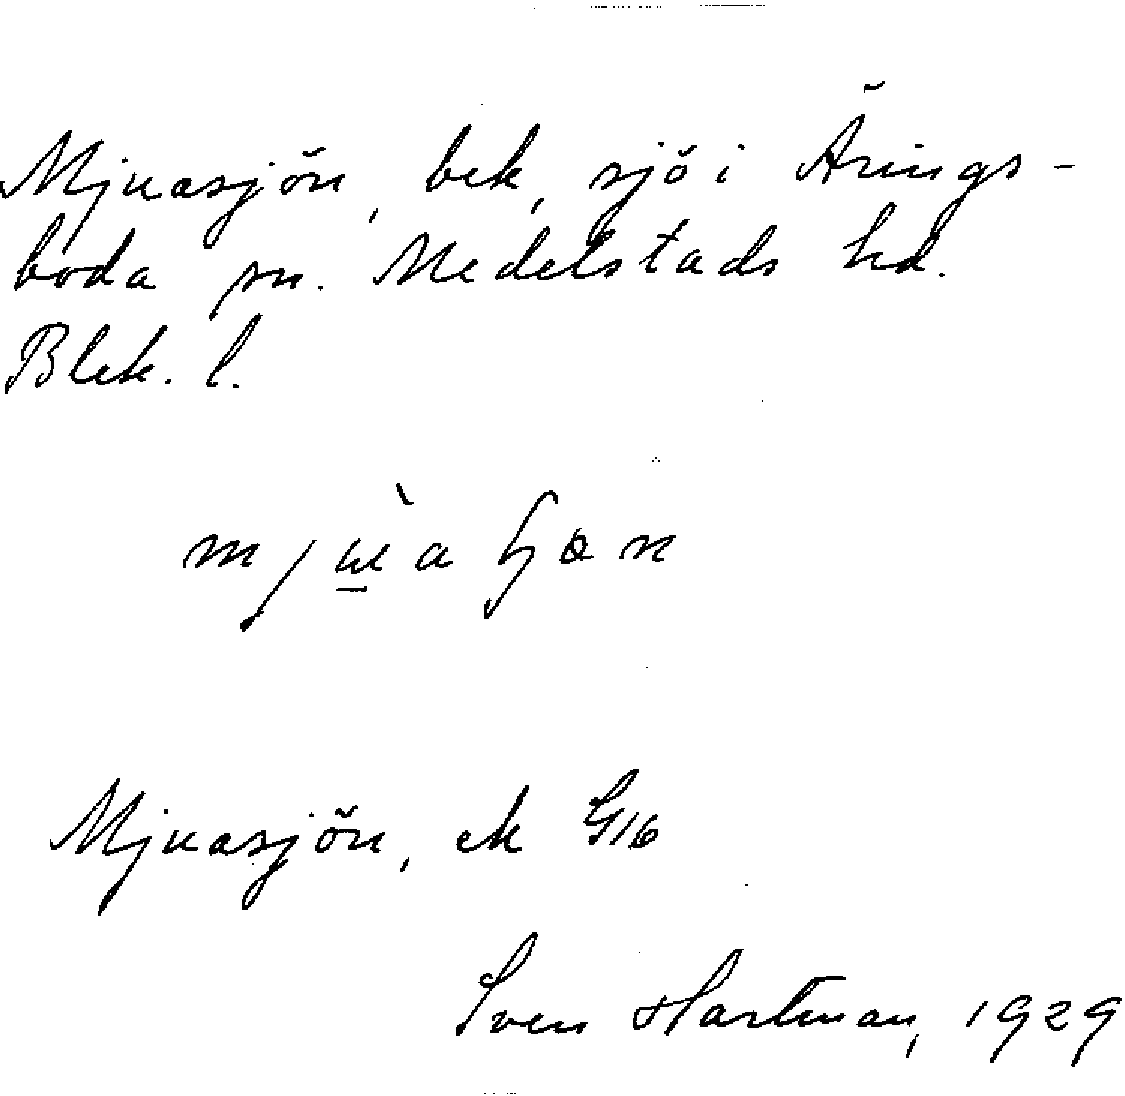 Mjuasjön, bek, sjö i Årings-
boda sn. Medelstads hd.
Blek. l.
Mjuasjön, ek G16
Sven Hartman, 1929